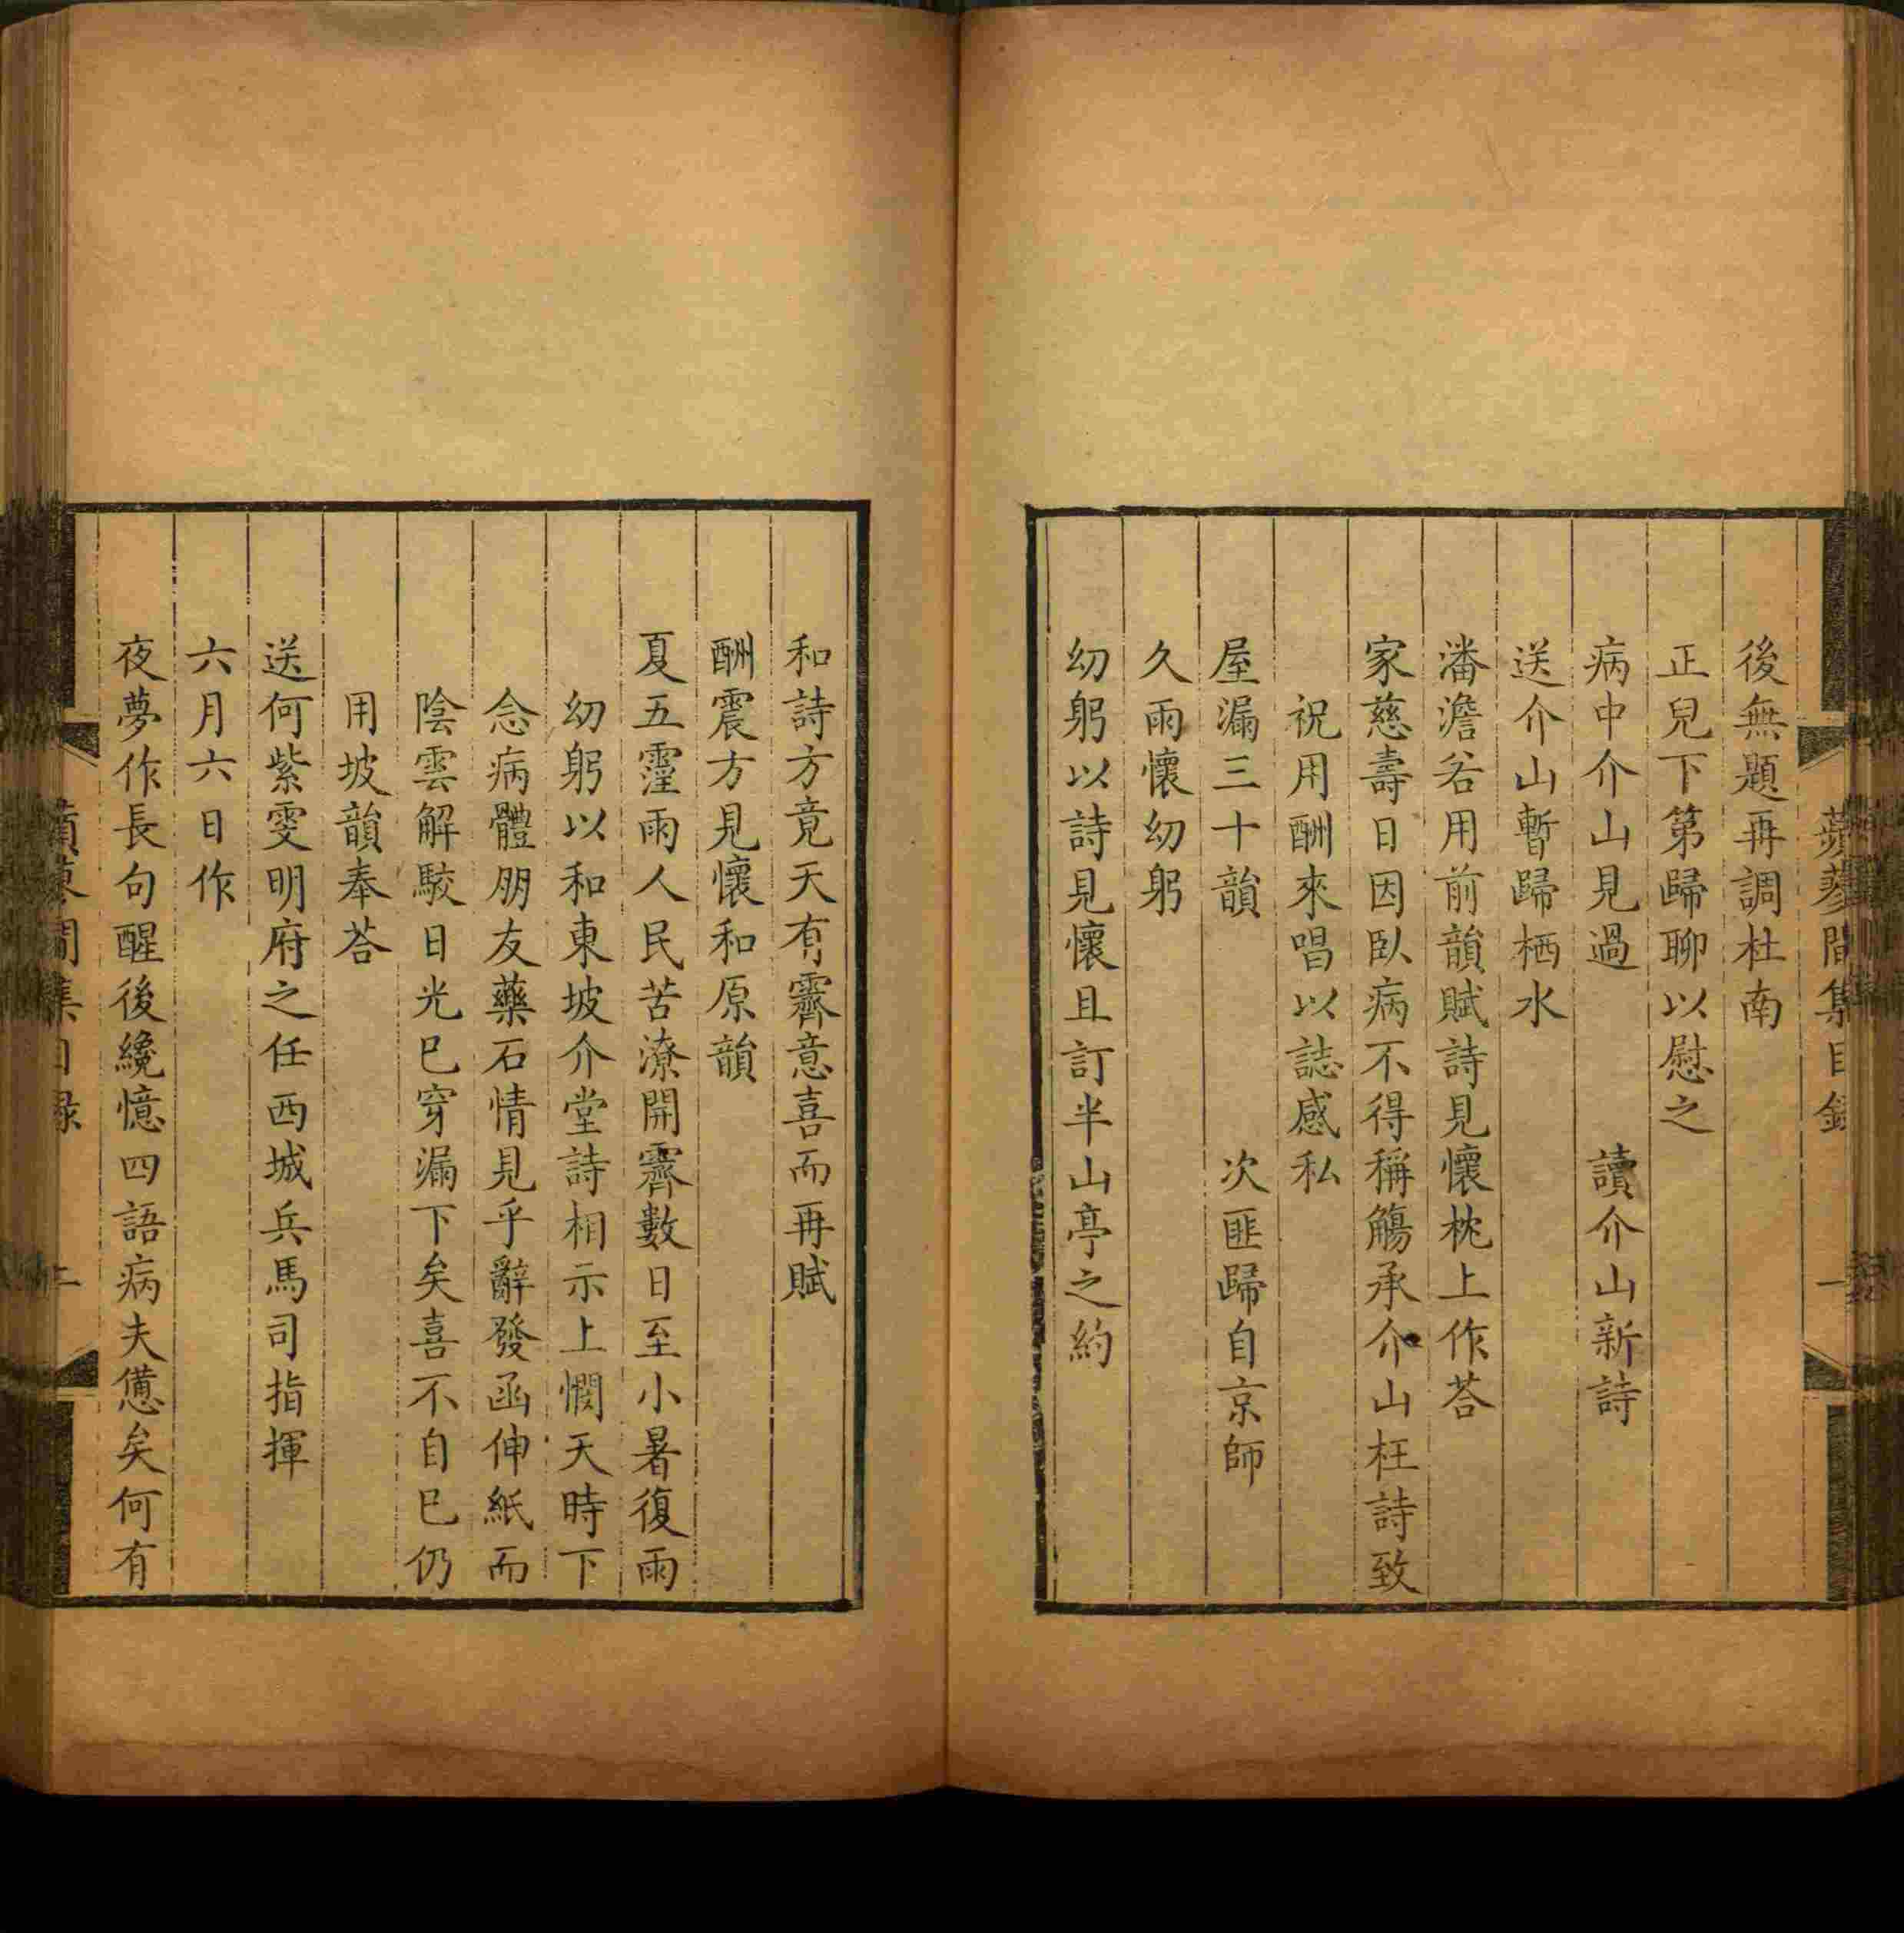 蘋蓼間集目錄 一
後無題再調杜南
正兒下第歸聊以慰之
病中介山見過 讀介山新詩
送介山暫歸栖水
潘澹谷用前韻賦詩見懷枕上作荅
家慈壽日因臥病不得稱觴承介山枉詩致
祝用酬來唱以誌感私
屋漏三十韻 次匪歸自京師
久雨懷幼躬
幼躬以詩見懷且訂半山亭之約
和詩方竟天有霽意喜而再賦
酬震方見懷和原韻
夏五霪雨人民苦潦開霽數日至小暑復雨
幼躬以和東坡介堂詩相示上憫天時下
念病體朋友藥石情見乎辭發函伸紙而
陰雲解駮日光已穿漏下矣喜不自已仍
用坡韻奉荅
送何紫雯明府之任西城兵馬司指揮
六月六日作
夜夢作長句醒後纔憶四語病夫憊矣何有
蘋蓼間集目錄 二